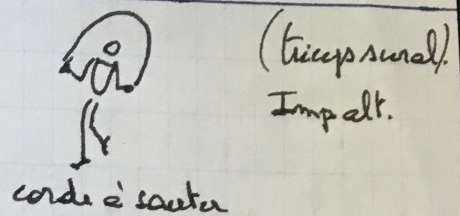 (triceps sural).
Impalt.
corde à sauter